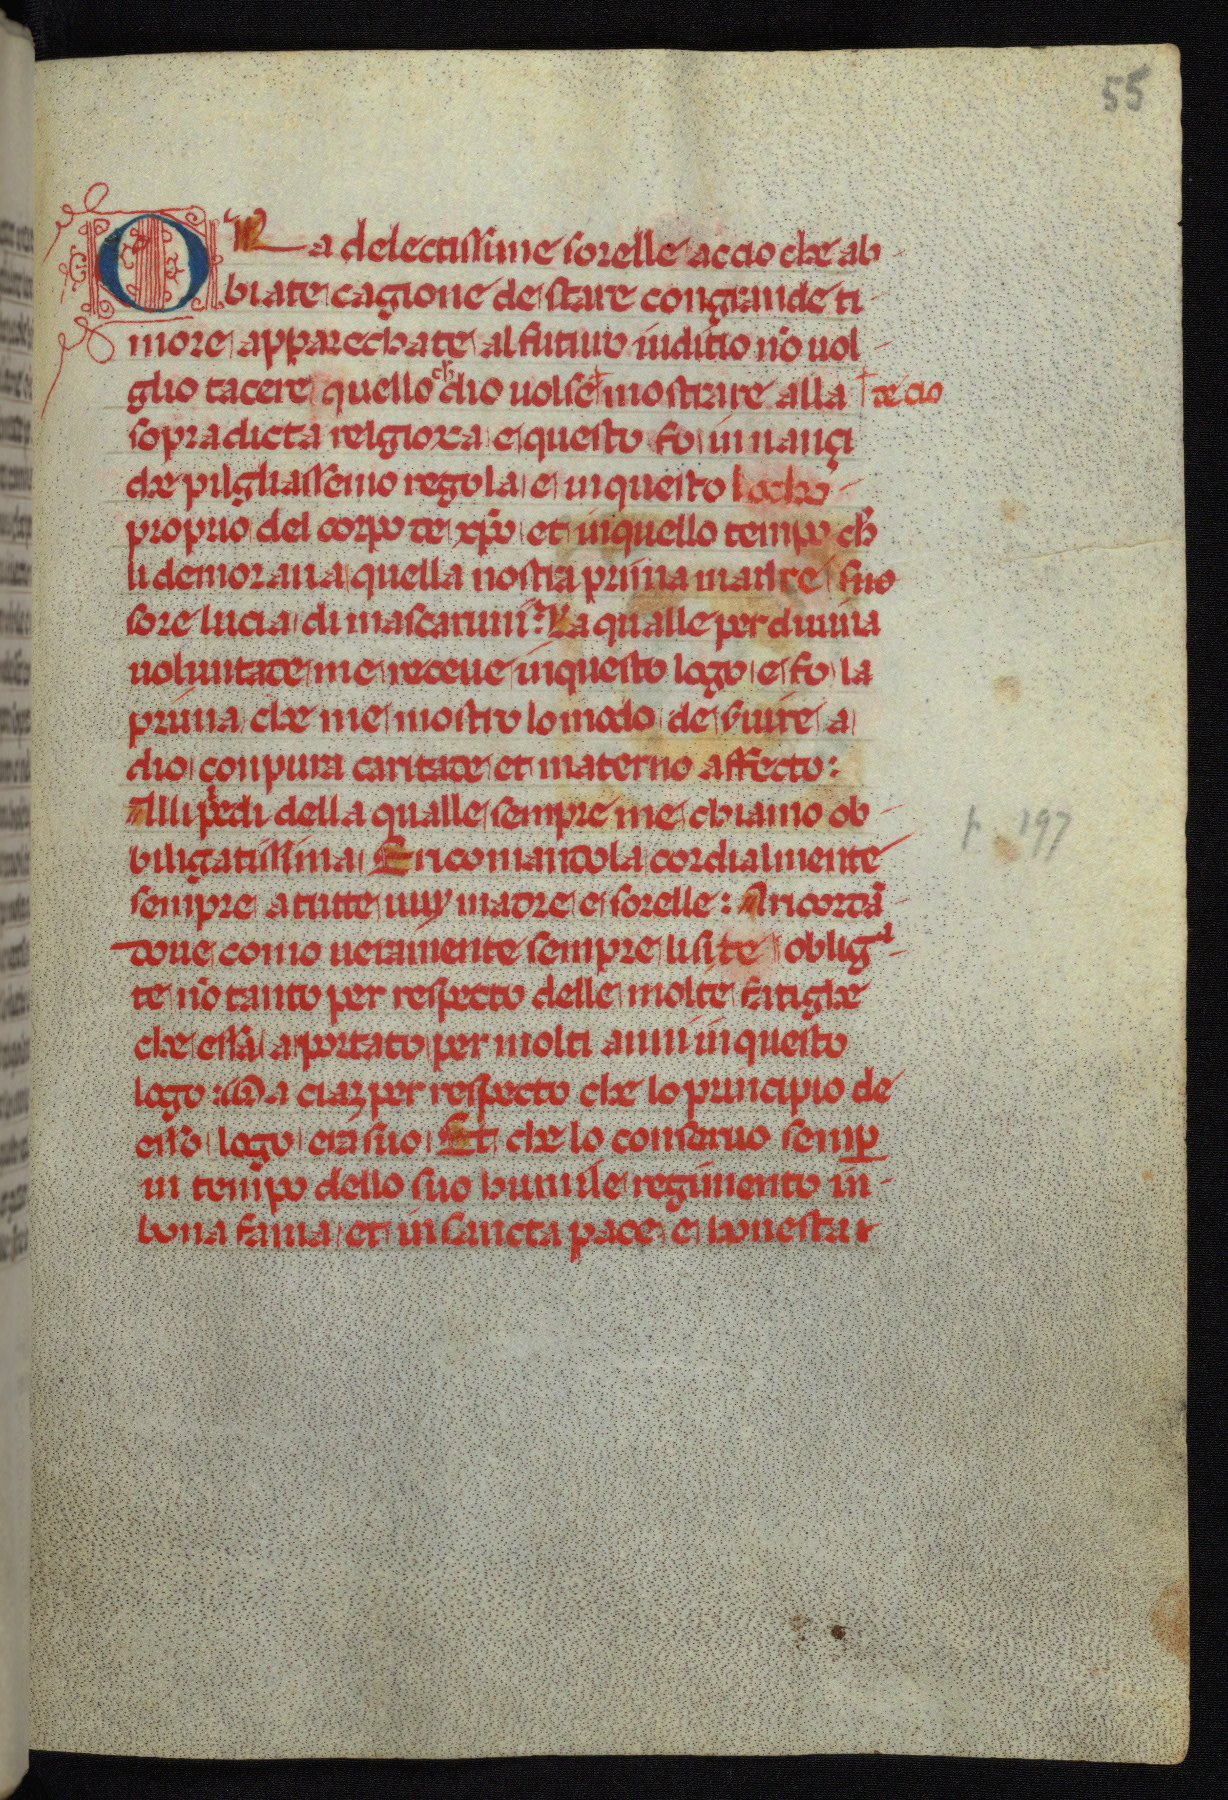 55
ORa delectissime sorelle accio che ab
biate cagione de stare con grande ti
more apparechiate al futuro iuditio nō uol
glio tacere quello ch̄ dio uolse mostrare alla te cio
sopra dicta relgioxa e questo fo in nançi
che pilgliassemo regola e in questo locho
proprio del corpo de xp̄o et in quello tempo ch̄
li demoraua quella nostra prima madre suo
sore lucia di mascaruni: La qualle per diuina
uoluntade me receue in questo logo e fo la
prima che me mostro lo modo de seruire a
dio con pura caritade et materno affecto:
Alli pedi della qualle sempre me chiamo ob
biligatissima E ricomandola cordialmente
sempre a tutte uuy madre e sorelle: A ricordā
done como ueramente sempre li site obliga
te nō tanto per respecto delle molte fatighe
che essa a portato per molti anni in questo
logo: Ma ciaz per respecto che lo principio de
esso logo era suo Et che lo conseruo semp̄
in tempo dello suo humile regimento in
bona fama et in sancta pace e honesta
197